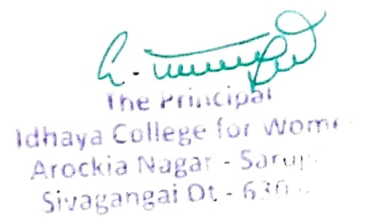 The Principal
Idhaya College for Wom
Arockia Nagar - Saru
Sivagangai Dt - 630